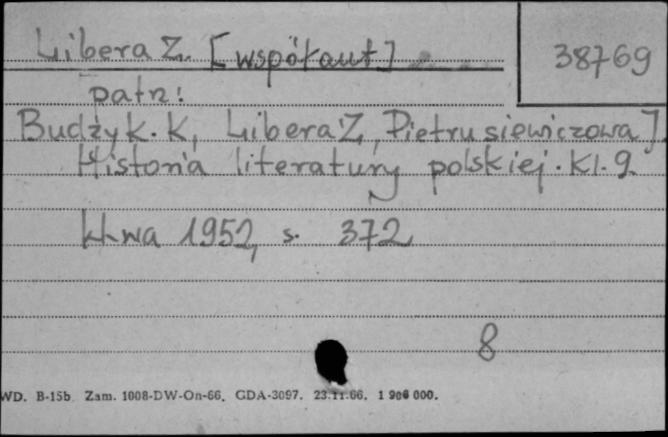 Libera Z. [współaut] 38769
patrz:
Budzyk. K, Libera Z, Pietrusiewiczowa J.
Historia literatury polskiej. Kl. 9.
W-wa 1952, s. 372
8
WD. B-15b Zam. 1008-DW-On-66. GDA-3097. 23.11.66. 1 900 000.